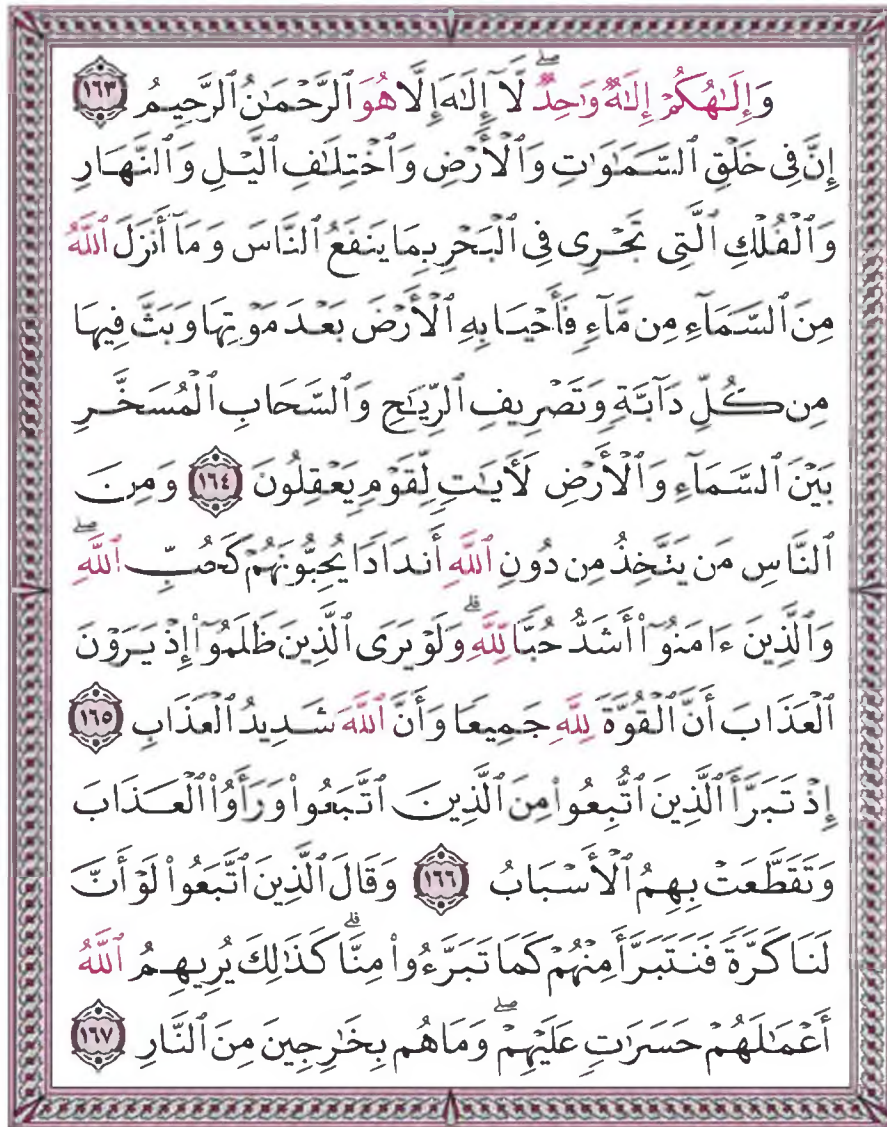 وَإِلَٰهُكُمْ إِلَٰهٌ وَٰحِدٌ ۖ لَّآ إِلَٰهَ إِلَّا هُوَ ٱلرَّحْمَٰنُ ٱلرَّحِيمُ ١٦٣
إِنَّ فِى خَلْقِ ٱلسَّمَٰوَٰتِ وَٱلْأَرْضِ وَٱخْتِلَٰفِ ٱلَّيْلِ وَٱلنَّهَارِ
وَٱلْفُلْكِ ٱلَّتِى تَجْرِى فِى ٱلْبَحْرِ بِمَا يَنفَعُ ٱلنَّاسَ وَمَآ أَنزَلَ ٱللَّهُ
مِنَ ٱلسَّمَآءِ مِن مَّآءٍ فَأَحْيَا بِهِ ٱلْأَرْضَ بَعْدَ مَوْتِهَا وَبَثَّ فِيهَا
مِن كُلِّ دَآبَّةٍ وَتَصْرِيفِ ٱلرِّيَٰحِ وَٱلسَّحَابِ ٱلْمُسَخَّرِ
بَيْنَ ٱلسَّمَآءِ وَٱلْأَرْضِ لَأٓيَٰتٍ لِّقَوْمٍ يَعْقِلُونَ ١٦٤ وَمِنَ
ٱلنَّاسِ مَن يَتَّخِذُ مِن دُونِ ٱللَّهِ أَندَادًا يُحِبُّونَهُمْ كَحُبِّ ٱللَّهِ ۖ
وَٱلَّذِينَ ءَامَنُوٓا۟ أَشَدُّ حُبًّا لِّلَّهِ ۗ وَلَوْ يَرَى ٱلَّذِينَ ظَلَمُوٓا۟ إِذْ يَرَوْنَ
ٱلْعَذَابَ أَنَّ ٱلْقُوَّةَ لِلَّهِ جَمِيعًا وَأَنَّ ٱللَّهَ شَدِيدُ ٱلْعَذَابِ ١٦٥
إِذْ تَبَرَّأَ ٱلَّذِينَ ٱتُّبِعُوا۟ مِنَ ٱلَّذِينَ ٱتَّبَعُوا۟ وَرَأَوُا۟ ٱلْعَذَابَ
وَتَقَطَّعَتْ بِهِمُ ٱلْأَسْبَابُ ١٦٦ وَقَالَ ٱلَّذِينَ ٱتَّبَعُوا۟ لَوْ أَنَّ
لَنَا كَرَّةً فَنَتَبَرَّأَ مِنْهُمْ كَمَا تَبَرَّءُوا۟ مِنَّا ۗ كَذَٰلِكَ يُرِيهِمُ ٱللَّهُ
أَعْمَٰلَهُمْ حَسَرَٰتٍ عَلَيْهِمْ ۖ وَمَا هُم بِخَٰرِجِينَ مِنَ ٱلنَّارِ ١٦٧